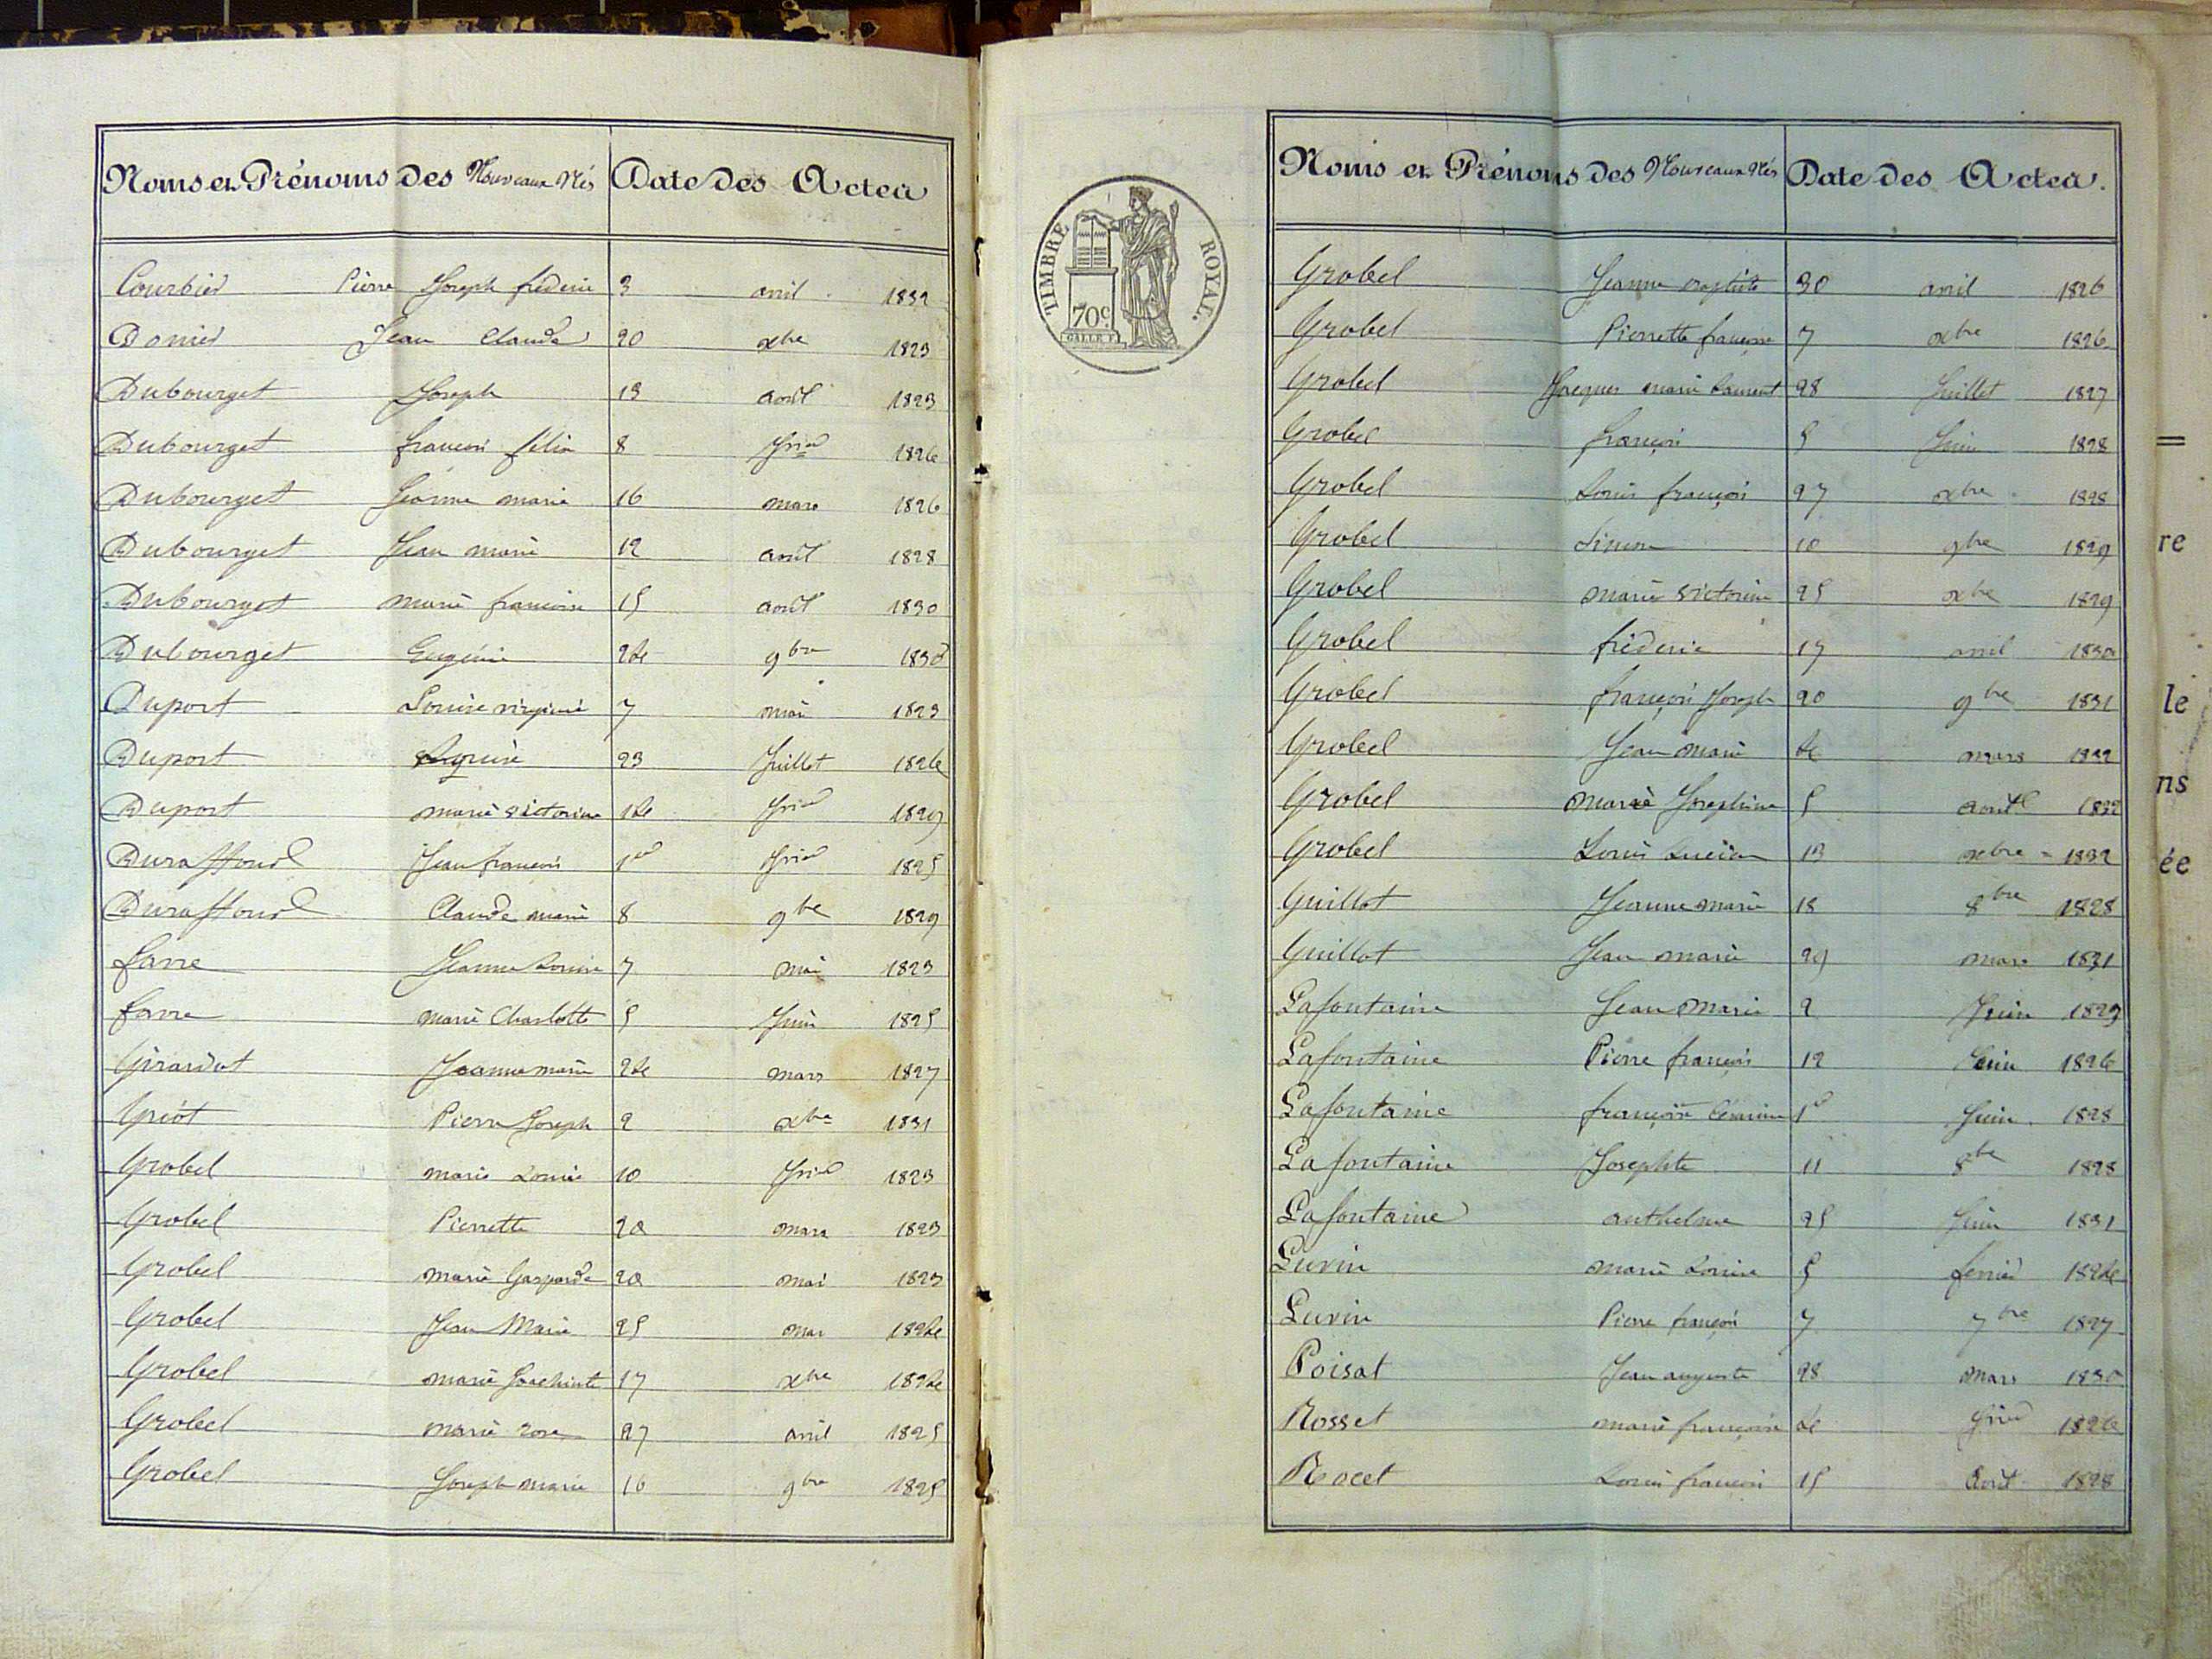 Noms et Prénoms des Nouveaux Nés Date des Actes
Courbier Pierre Joseph fréderic 3 avril 1832
Donier Jean Claude 20 xbre 1823
Dubourget Joseph 13 août 1823
Dubourget françois félix 8 1826
Dubourget Jeanne marie 16 mars 1826
Dubourget Jean marie 12 août 1828
Dubourget marie françoise 15 août 1830
Dubourget Eugénie 24 9bre 1830
Duport Louise virginie 7 mai 1823
Duport 23 Juillet 1826
Duport marie victorine 14 1829
Duraffourd Jean françois 1er 1825
Duraffourd Claude marie 8 9bre 1829
favre Jeanne Louise 7 mai 1823
favre marie Charlotte 5 Juin 1825
Girardot Jeanne marie 24 mars 1827
Griot Pierre Joseph 2 xbre 1831
Grobel marie Louise 10 1823
Grobel Pierrette 20 mars 1823
Grobel marie Gasparde 20 mai 1823
Grobel Jean Marie 25 1824
Grobel marie 17 xbre 1824
Grobel marie rose 27 avril 1825
Grobel Joseph marie 16 9bre 1825
TIMBRE ROYAL.
70c
Noms et Prénoms des Nouveaux Nés Date des Actes.
Grobel Jeanne baptiste 30 avril 1826
Grobel Pierrette françoise 7 xbre 1826
Grobel Jacques marie Laurent 28 Juillet 1827
Grobel françois 5 Juin 1828
Grobel Louis françois 27 xbre 1828
Grobel Simon 10 9bre 1829
Grobel marie victorine 25 xbre 1829
Grobel fréderic 17 avril 1830
Grobel françois Joseph 20 9bre 1831
Grobel Jean marie 4 mars 1832
Grobel marie Josephine 5 août 1832
Grobel Louis Lucien 13 xbre 1832
Guillot Jeanne marie 18 8bre 1828
Guillot Jean marie 29 mars 1831
Lafontaine Jean Marie 2 Juin 1823
Lafontaine Pierre françois 12 Juin 1826
Lafontaine françoise 1er Juin 1828
Lafontaine Josephte 11 8bre 1828
Lafontaine anthelme 25 Juin 1831
Luvin marie Louise 5 fevrier 1824
Luvin Pierre françois 7 7bre 1827
Poisat Jean auguste 28 mars 1830
Rosset marie françoise 4 1826
Rocet Louis françois 15 Août 1828
=
re
le
ns
ée